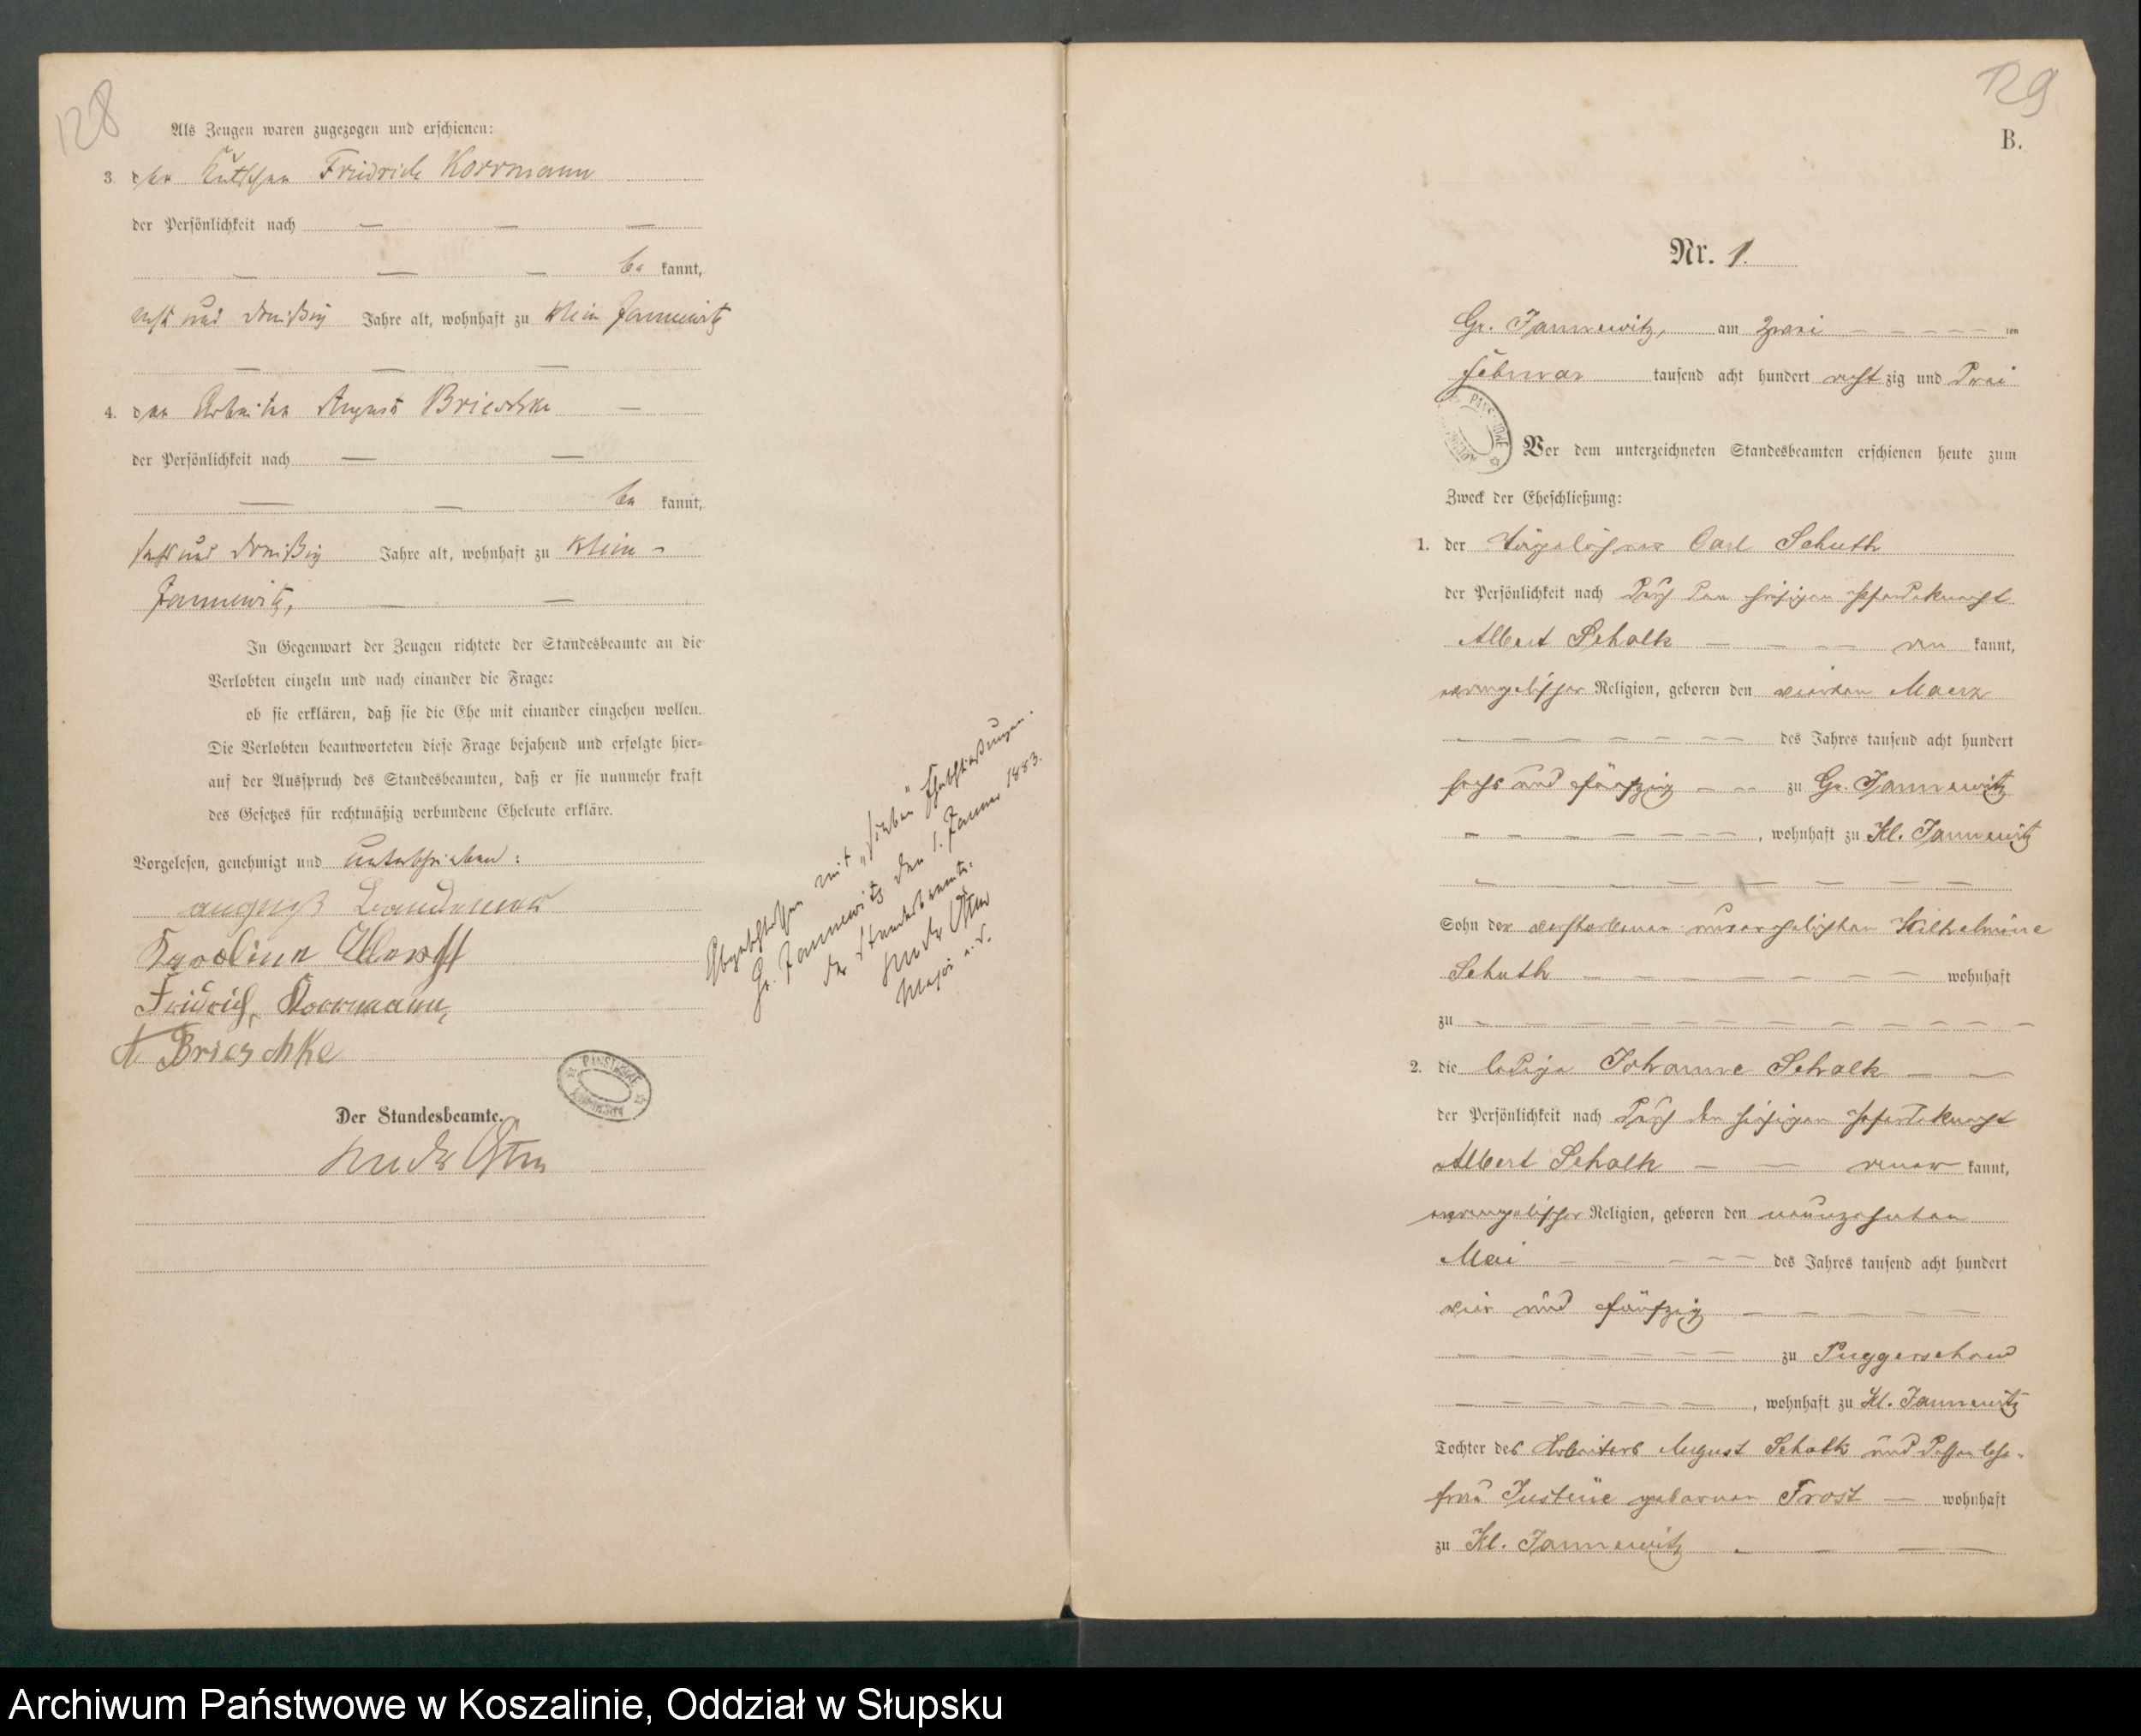 128
Als Zeugen waren zugezogen und erschienen:
3. der Kutscher Friedrich Korrmann
der Persönlichkeit nach — — —
— — — be kannt,
acht und dreißig Jahre alt, wohnhaft zu Klein Jannewitz
— — —
4. der Arbeiter August Brieschke —
der Persönlichkeit nach — —
— — be kannt,
und dreißig Jahre alt, wohnhaft zu Klein-
Jannewitz, — —
In Gegenwart der Zeugen richtete der Standesbeamte an die
Verlobten einzeln und nach einander die Frage:
ob sie erklären, daß sie die Ehe mit einander eingehen wollen.
Die Verlobten beantworteten diese Frage bejahend und erfolgte hier-
auf der Ausspruch des Standesbeamten, daß er sie nunmehr kraft
des Gesetzes für rechtmäßig verbundene Eheleute erkläre.
Vorgelesen, genehmigt und unterschrieben:
Karoline
Fridrich Korrmann,
A Brieschke
Der Standesbeamte.
von der Osten
PAŃSTWOWE
Abgeschlossen mit „sieben" Eheschließungen.
Gr. Jannewitz den 1. Januar 1883.
der Standesbeamte.
von der Osten
Major a. D.
129
B.
Nr. 1.
Gr. Jannewitz, am zwei — — — — — ten
Februar tausend acht hundert acht zig und drei
PAŃSTWOWE
Vor dem unterzeichneten Standesbeamten erschienen heute zum
Zweck der Eheschließung:
1. der Tagelöhner Carl Schuth
der Persönlichkeit nach durch den hiesigen Pferdeknecht
Albert Schalk — — — — an kannt,
evangelischer Religion, geboren den vierten Maerz
— — — — — — — des Jahres tausend acht hundert
sechs und fünfzig — — — zu Gr. Jannewitz
— — — — — — —, wohnhaft zu Kl. Jannewitz
— — — — — — —
Sohn der verstorbenen unverehelichten Wilhelmine
Schuth — — — — — — — — wohnhaft
zu — — — — — — — — — — — —
2. die ledige Johanne Schalk — —
der Persönlichkeit nach durch den hiesigen Pferdeknecht
Albert Schalk — — aner kannt,
evangelischer Religion, geboren den neunzehnten
Mai — — — — — des Jahres tausend acht hundert
vier und fünfzig — — — — —
— — — — — — — zu Puggerschow
— — — — — — —, wohnhaft zu Kl. Jannewitz
Tochter des Arbeiters August Schalk und dessen Ehe-
frau Justine geborner Frost — wohnhaft
zu Kl. Jannewitz — — — —
Archiwum Państwowe w Koszalinie, Oddział w Słupsku